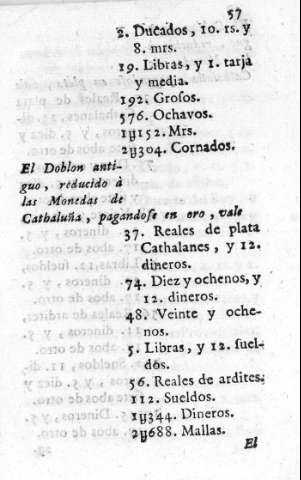 57
2. Ducados, 10. rs. y
8. mrs.
19. Libras, y 1. tarja
y media.
192. Grosos.
576. Ochavos.
1ȳ152. Mrs.
2ȳ304. Cornados.
El Doblon anti-
guo, reducido à
las Monedas de
Cathaluña, pagandose en oro, vale
37. Reales de plata
Cathalanes, y 12.
dineros.
74. Diez y ochenos, y
12. dineros.
48. Veinte y oche-
nos.
5. Libras, y 12. suel-
dos.
56. Reales de ardites.
112. Sueldos.
1ȳ344. Dineros.
2ȳ688. Mallas.
El